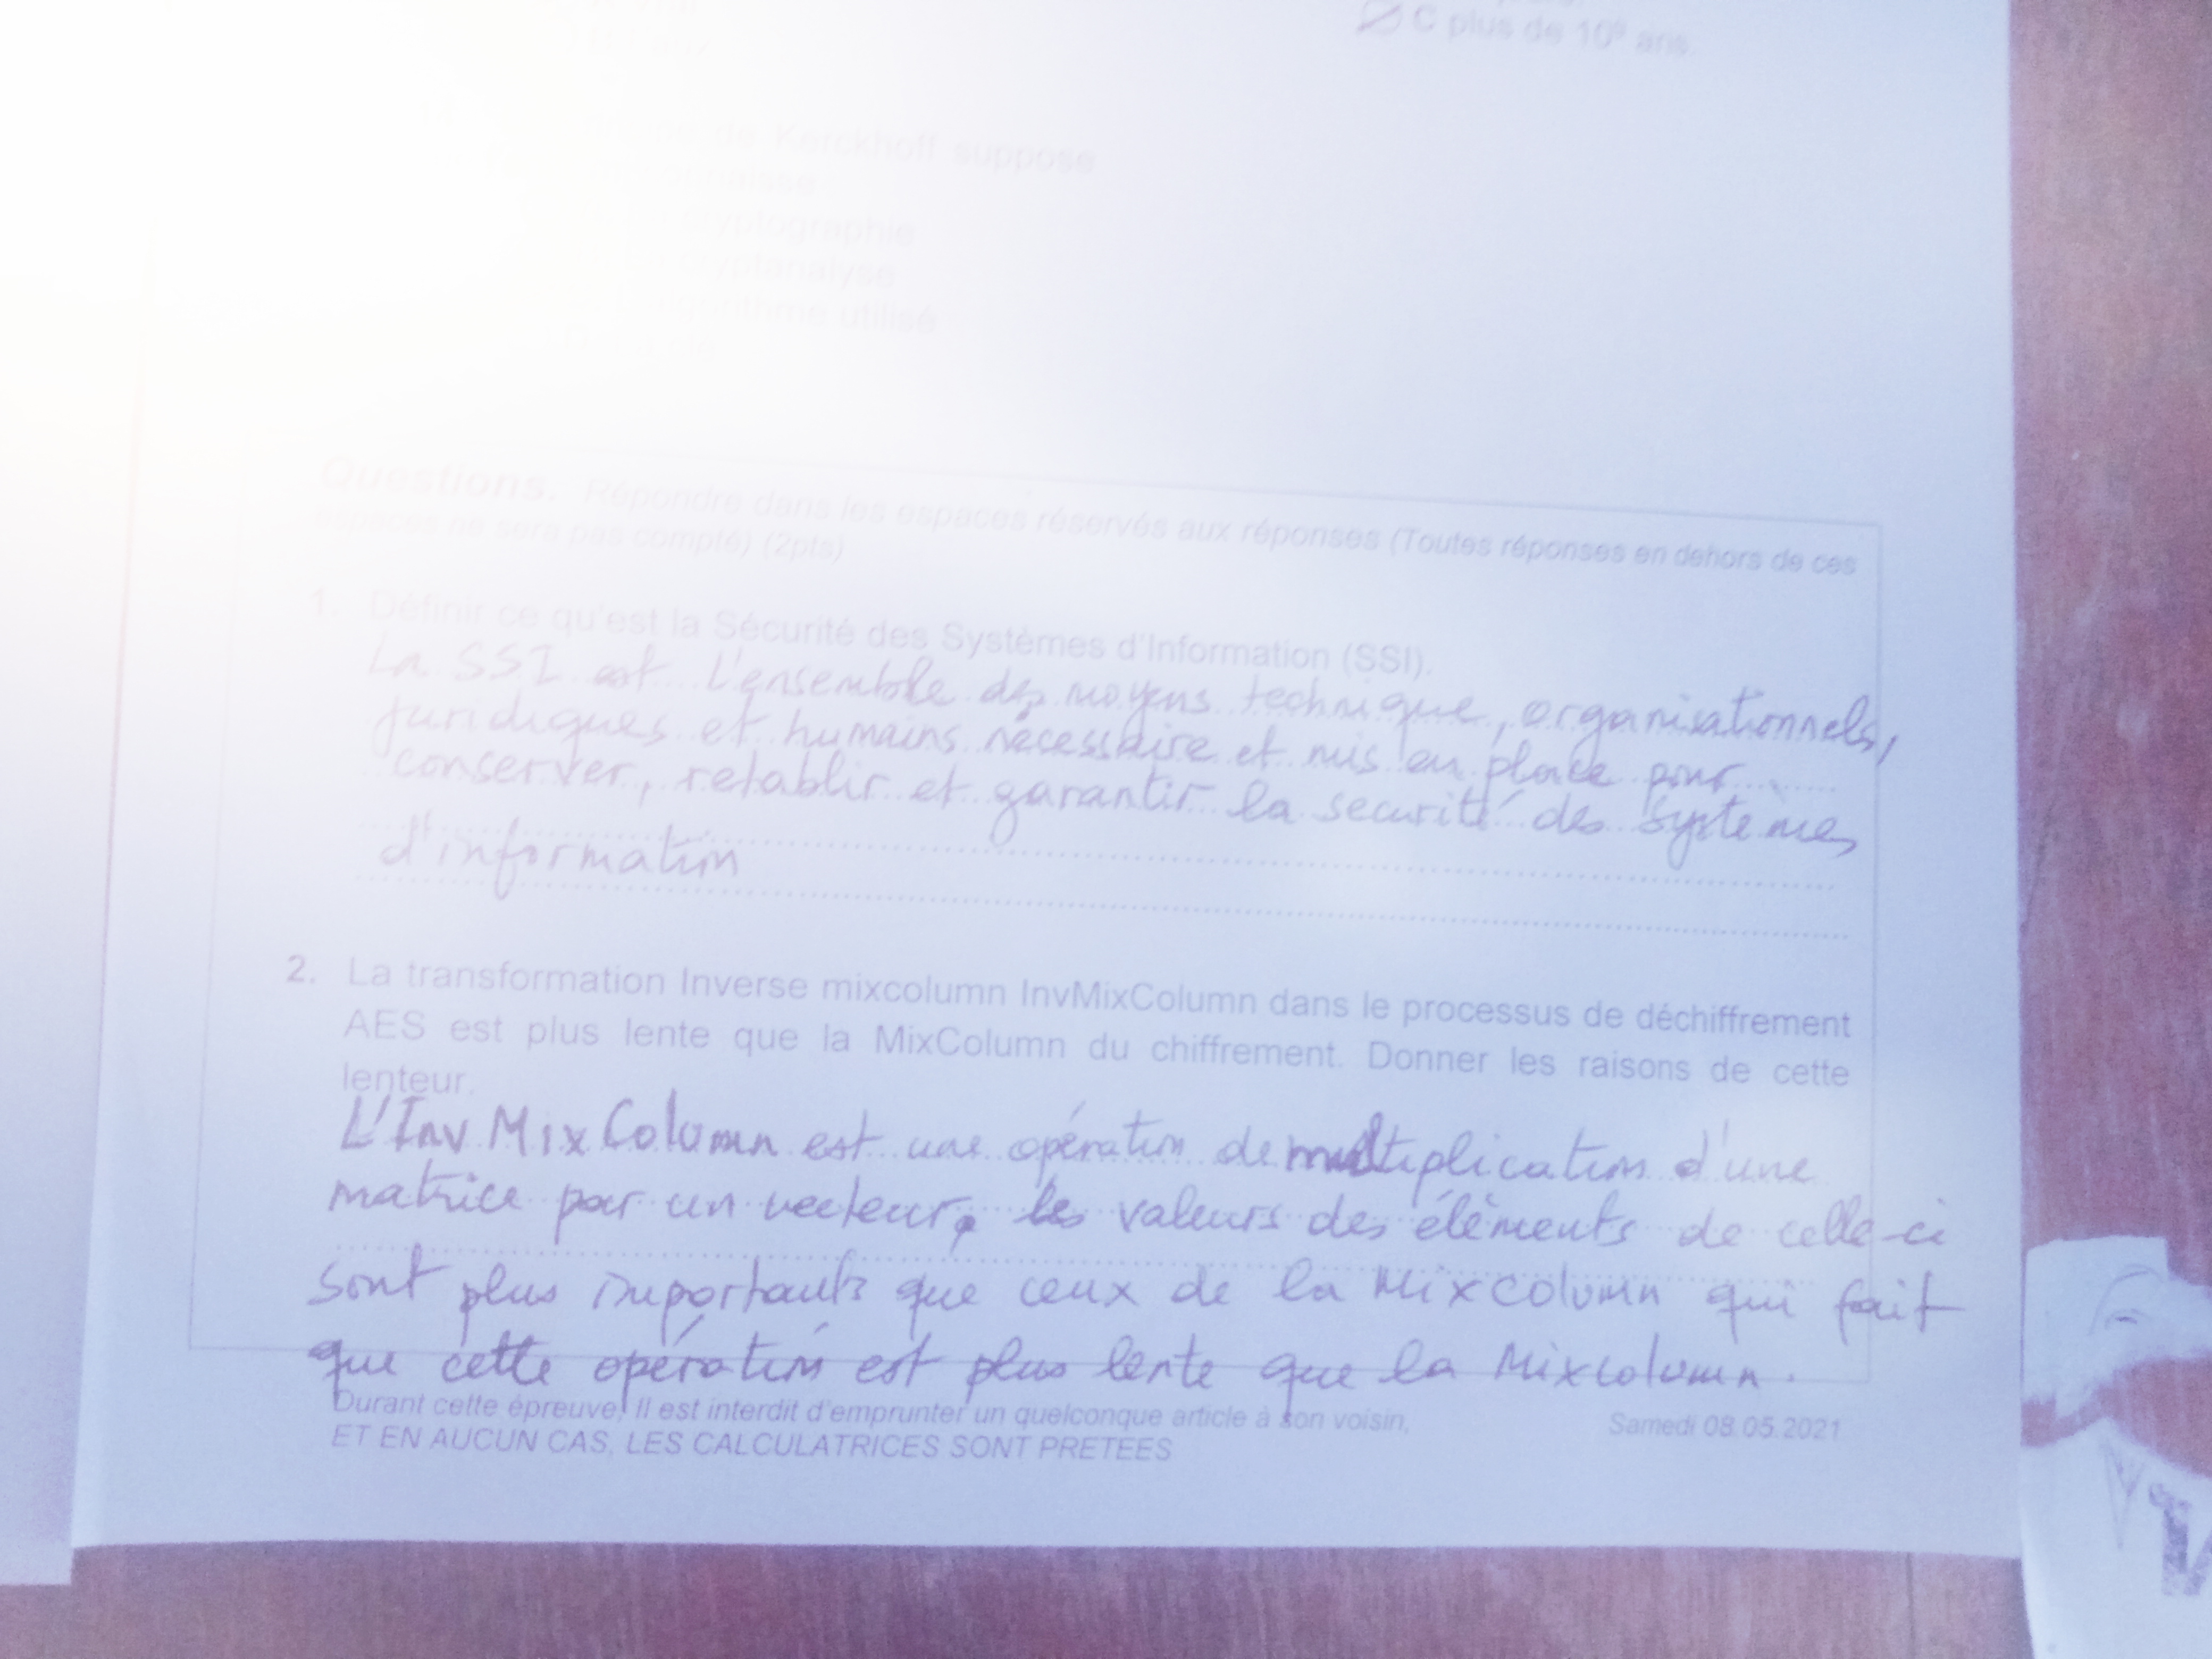 C plus de 10⁹ ans
de Kerckhoff suppose
cryptographie
cryptanalyse
algorithme utilisé
Questions. Répondre dans les espaces réservés aux réponses (Toutes réponses en dehors de ces
espaces ne sera pas compté) (2pts)
1. Définir ce qu'est la Sécurité des Systèmes d'Information (SSI).
La SSI est l'ensemble des moyens technique, organisationnels,
juridiques et humains nécessaire et mis en place pour
conserver, retablir et garantir la securité des systèmes
d'information
2. La transformation Inverse mixcolumn InvMixColumn dans le processus de déchiffrement
AES est plus lente que la MixColumn du chiffrement. Donner les raisons de cette
lenteur.
L'Inv MixColumn est une opération de multiplication d'une
matrice par un vecteur, les valeurs des éléments de celle-ci
sont plus importants que ceux de la MixColumn qui fait
que cette opération est plus lente que la Mixcolumn.
Durant cette épreuve, Il est interdit d'emprunter un quelconque article à son voisin,
Samedi 08.05.2021
ET EN AUCUN CAS, LES CALCULATRICES SONT PRETEES